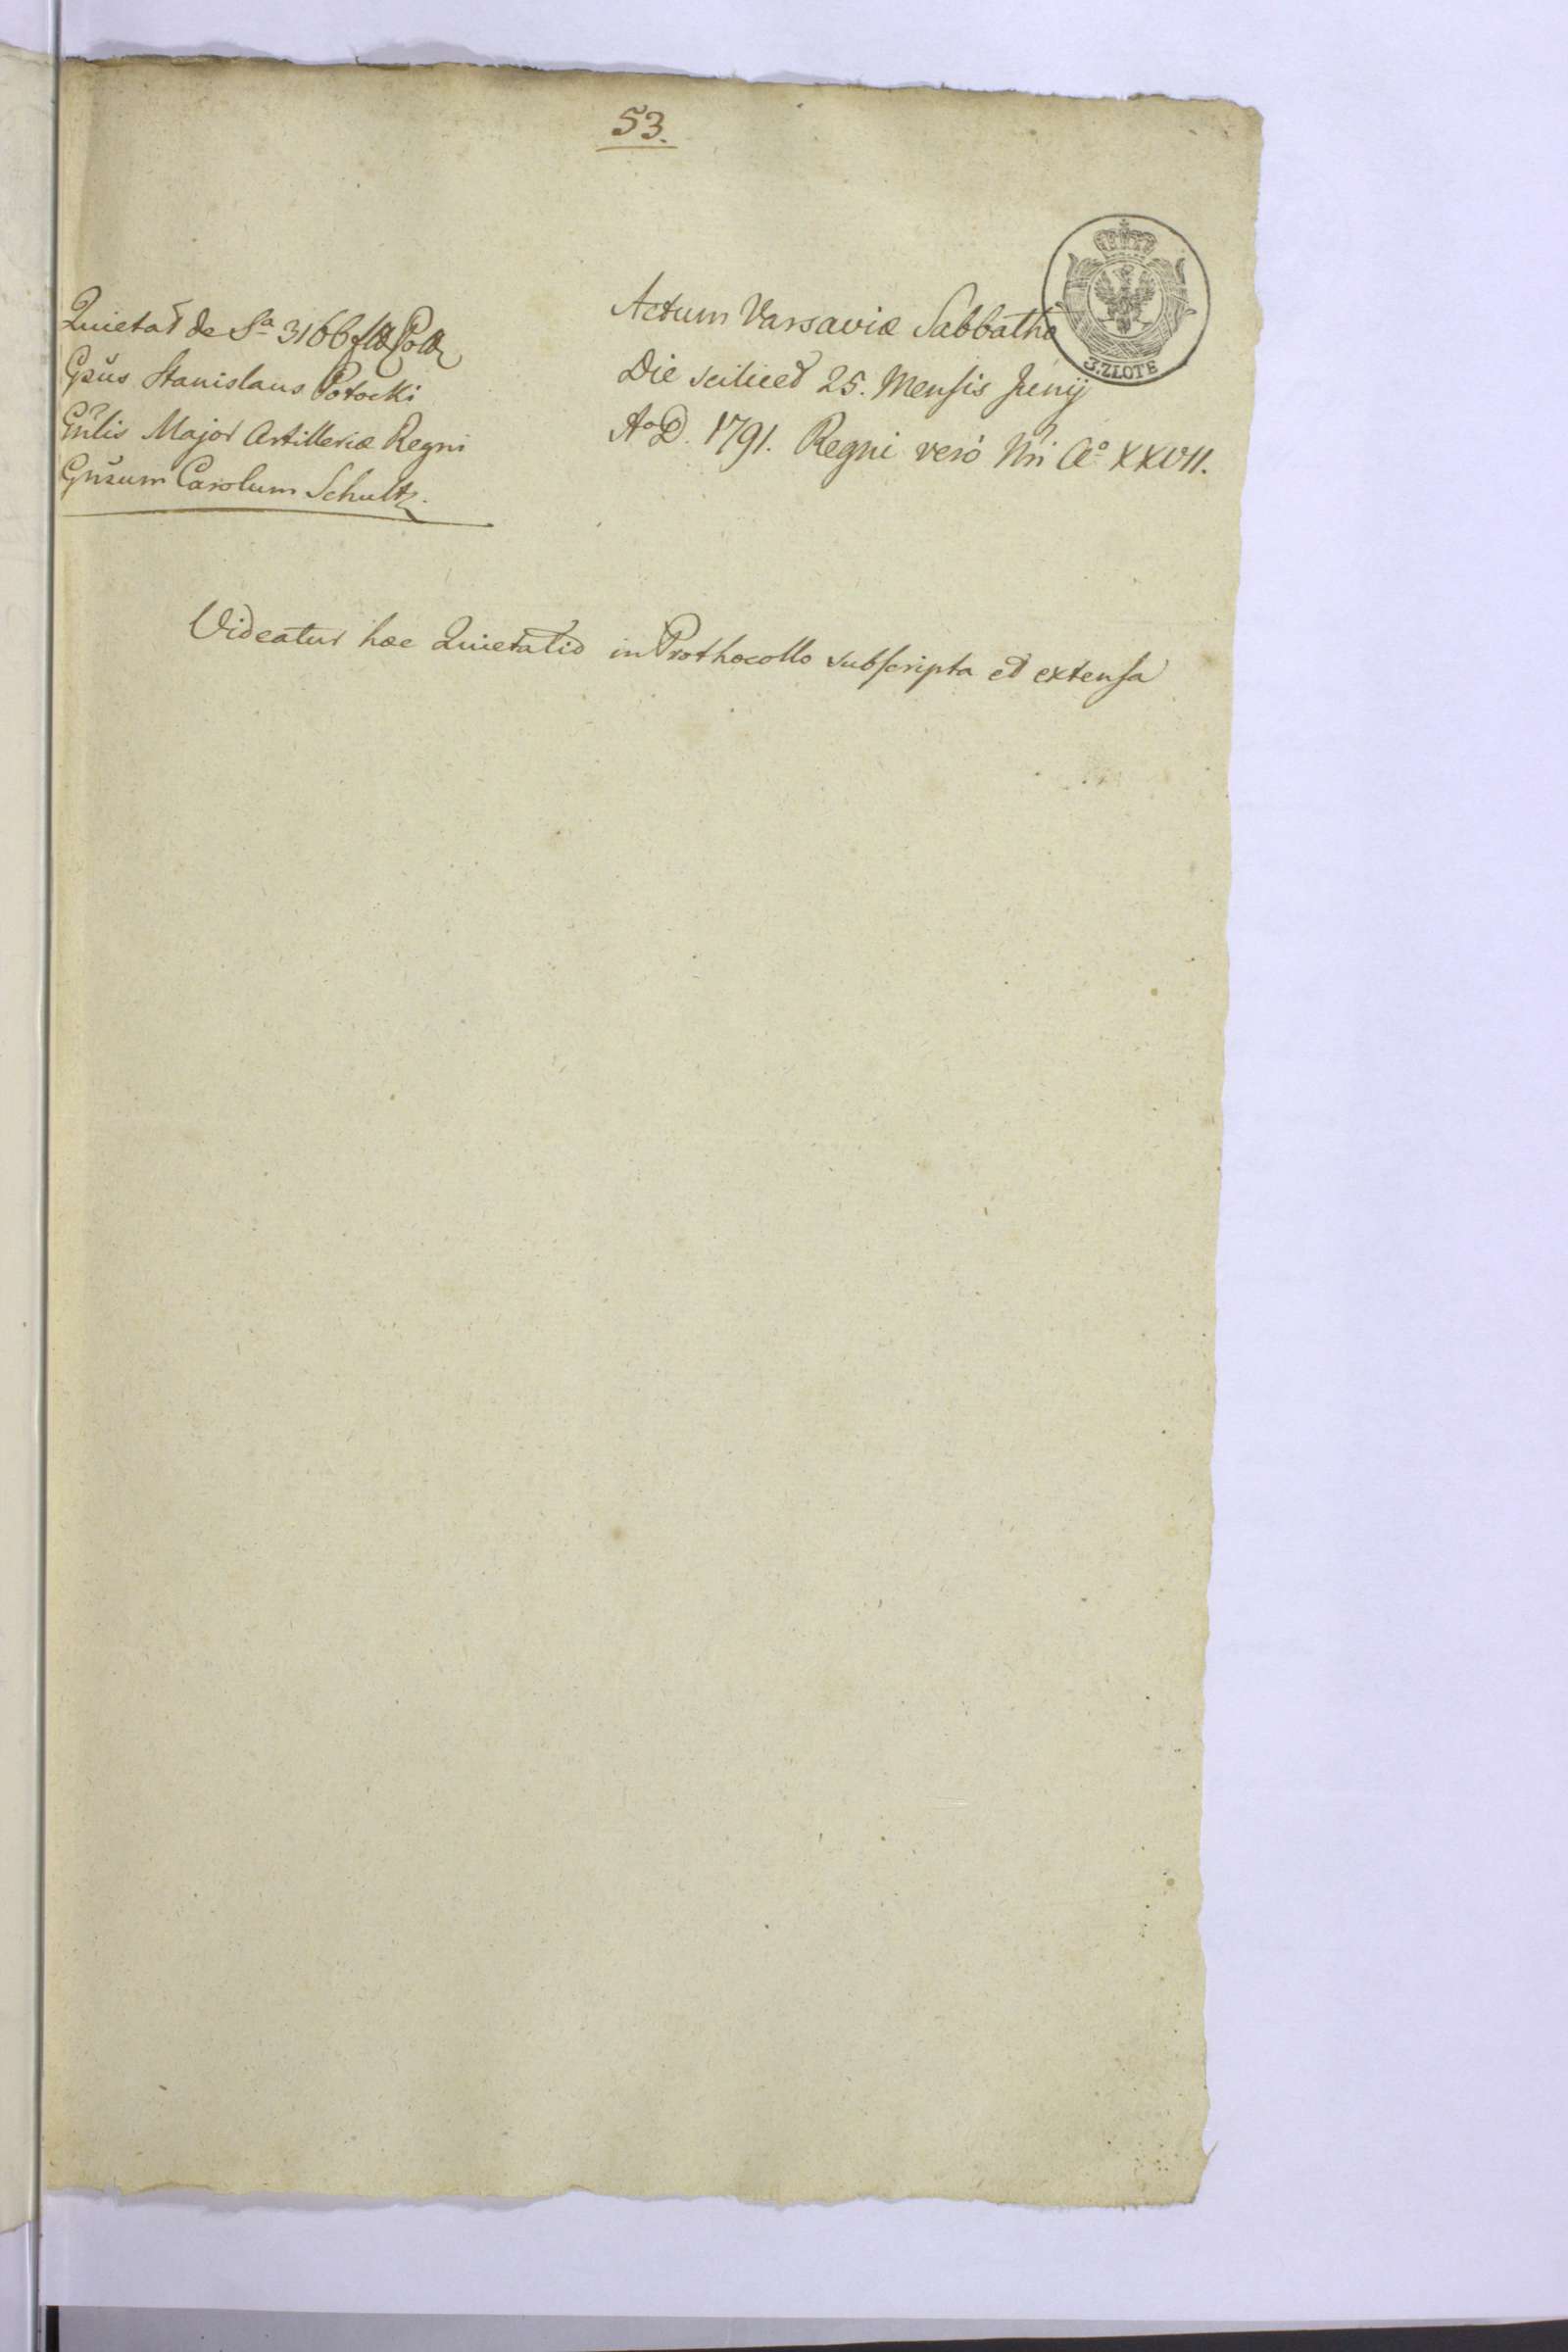 53.
Quietat de Sa 3166 fl Pol
Gsus Stanislaus Potocki
Gnlis Major Artilleriæ Regni
Gnsum Carolum Schultz.
Actum Varsaviæ Sabbatho
Die scilicet 25. Mensis Junij
Ao D. 1791. Regni vero Nri Ao XXVII.
3. ZŁOTE
Videatur hæc Quietatio in Prothocollo subscripta et extensa